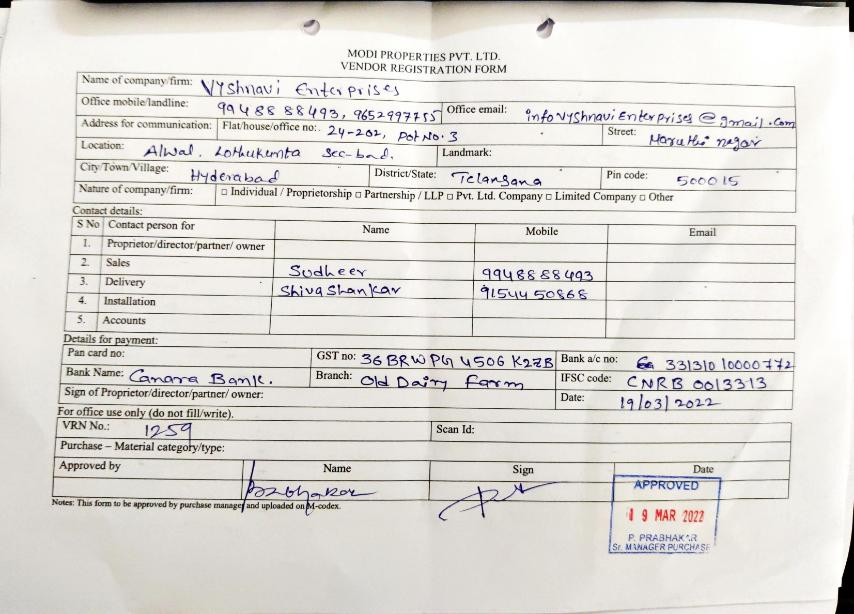 MODI PROPERTIES PVT. LTD.
VENDOR REGISTRATION FORM
Name of company/firm: Vyshnavi Enterprises
Office mobile/landline: 99488 88493, 9652997755 Office email: infovyshnaviEnterprises@gmail.com
Address for communication: Flat/house/office no: 24-202, Pot No. 3 Street: Maruthi nagar
Location: Alwal. Lothukunta Sec-bad. Landmark:
City/Town/Village: Hyderabad District/State: Telangana Pin code: 500015
Nature of company/firm: □ Individual / Proprietorship □ Partnership / LLP □ Pvt. Ltd. Company □ Limited Company □ Other
Contact details:
S No Contact person for Name Mobile Email
1. Proprietor/director/partner/ owner
2. Sales Sudheer 9948888493
3. Delivery Shiva Shankar 9154450868
4. Installation
5. Accounts
Details for payment:
Pan card no: GST no: 36BRWPG4506K2ZB Bank a/c no: 33131010000772
Bank Name: Canara Bank. Branch: Old Dairy Farm IFSC code: CNRB 0013313
Sign of Proprietor/director/partner/ owner: Date: 19/03/2022
For office use only (do not fill/write).
VRN No.: 1259 Scan Id:
Purchase – Material category/type:
Approved by Name Sign Date
Prabhakar
APPROVED
19 MAR 2022
P. PRABHAKAR
Sr. MANAGER PURCHASE
Notes: This form to be approved by purchase manager and uploaded on M-codex.